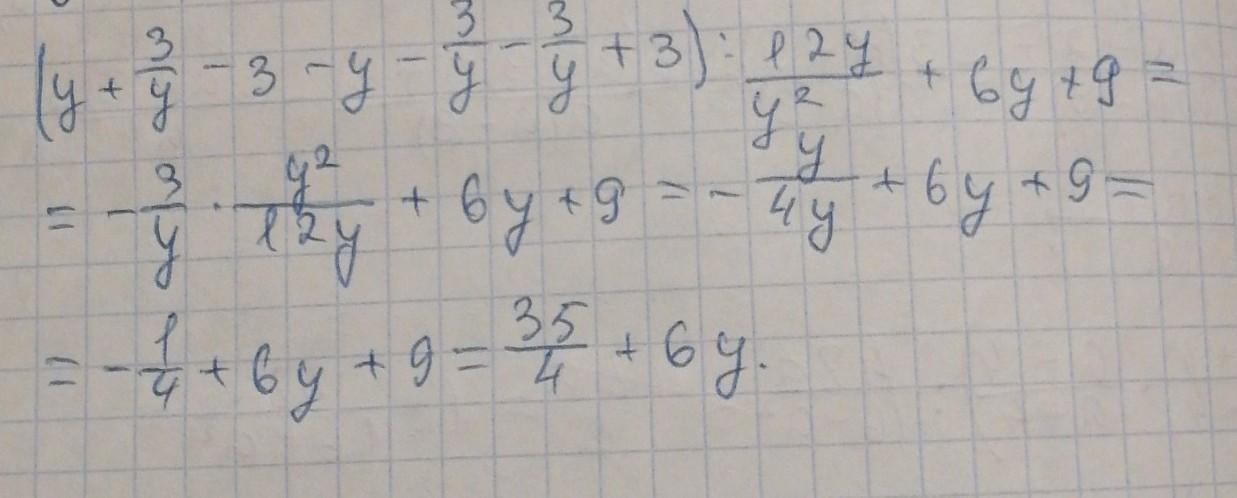 (y + 3/y - 3 - y - 3/y - 3/y + 3) : 12y/y² + 6y + 9 =
= - 3/y · y²/12y + 6y + 9 = - y/4y + 6y + 9 =
= - 1/4 + 6y + 9 = 35/4 + 6y.